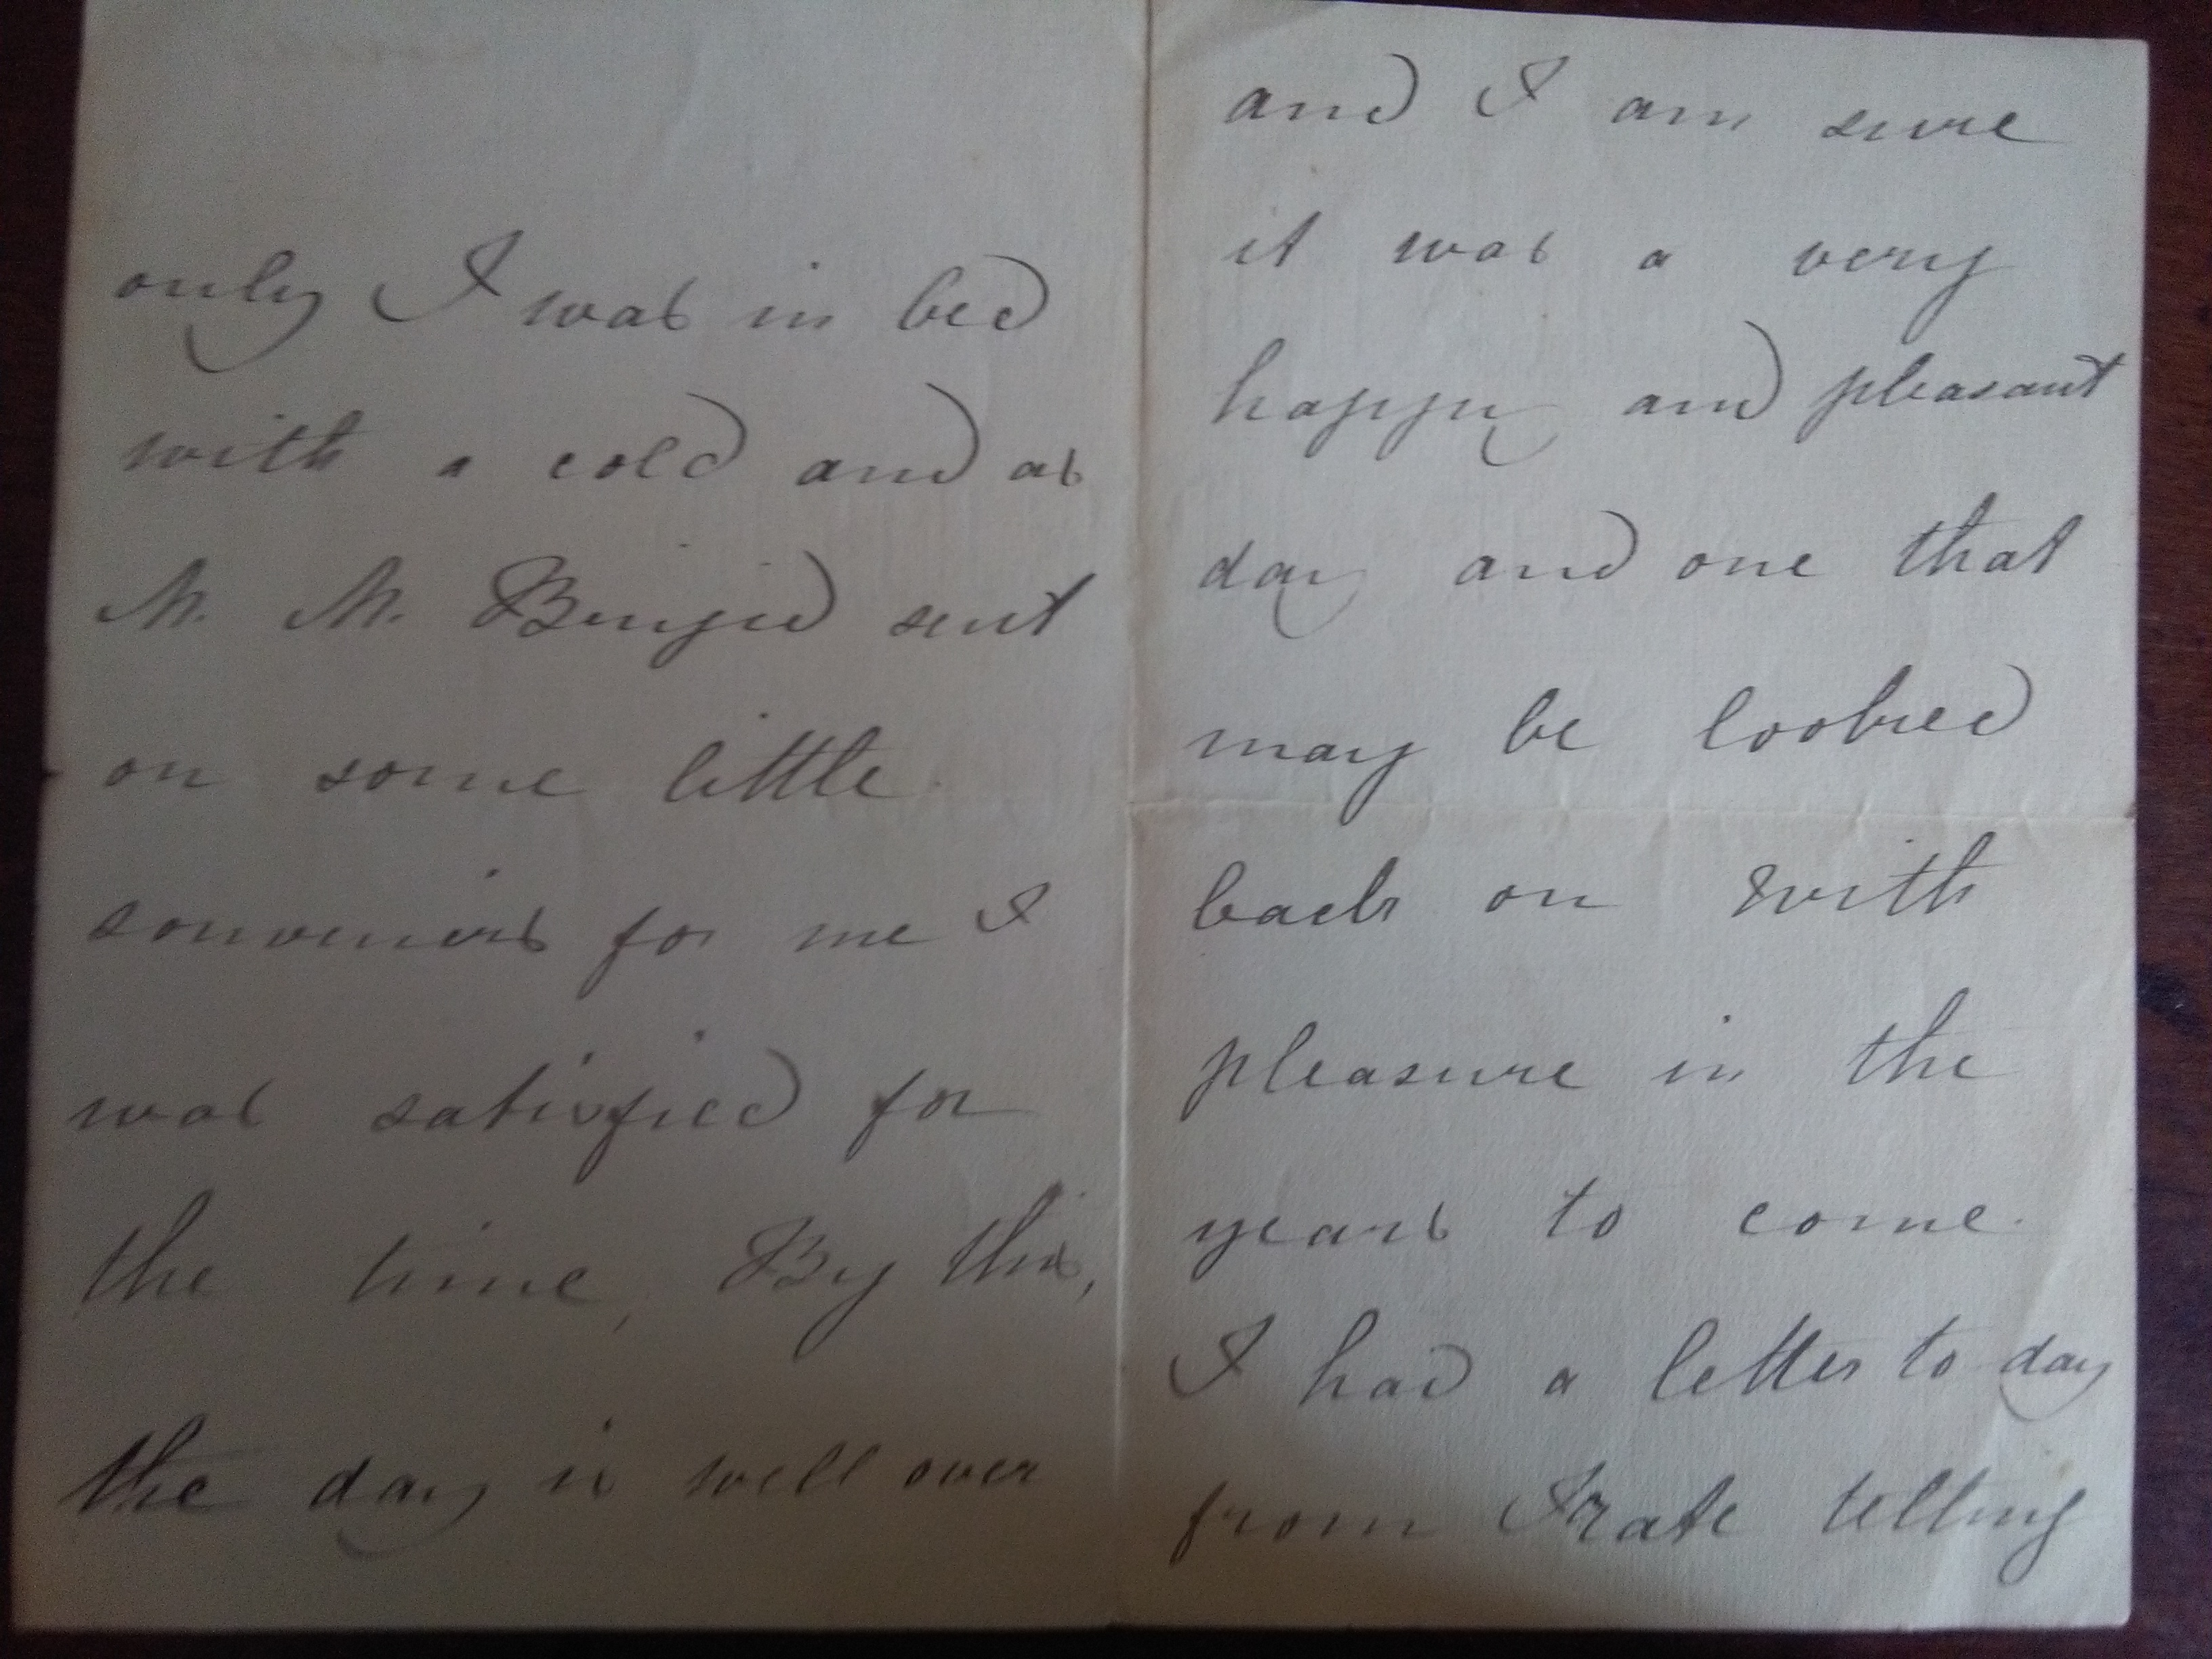 only I was in bed
with a cold and as
M. M. sent
on some little
souveniers for me I
was satisfied for
the time, By this,
the day is well over
and I am sure
it was a very
happy and pleasant
day and one that
may be looked
back on with
pleasure in the
years to come.
I had a letter to day
from Kate telling